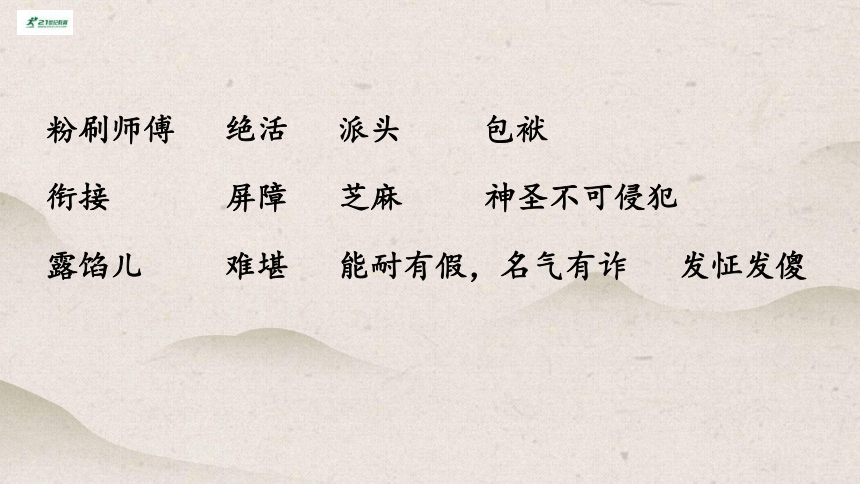 21世纪教育
粉刷师傅 绝活 派头 包袱
衔接 屏障 芝麻 神圣不可侵犯
露馅儿 难堪 能耐有假，名气有诈 发怔发傻